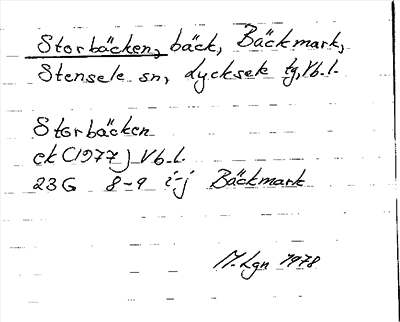 Storbäcken, bäck, Bäckmark,
Stensele sn, Lycksele tg, Vb.l.
Storbäcken
ek (1977) Vb.l.
23G 8-9 i-j Bäckmark
M. Lgn 1978